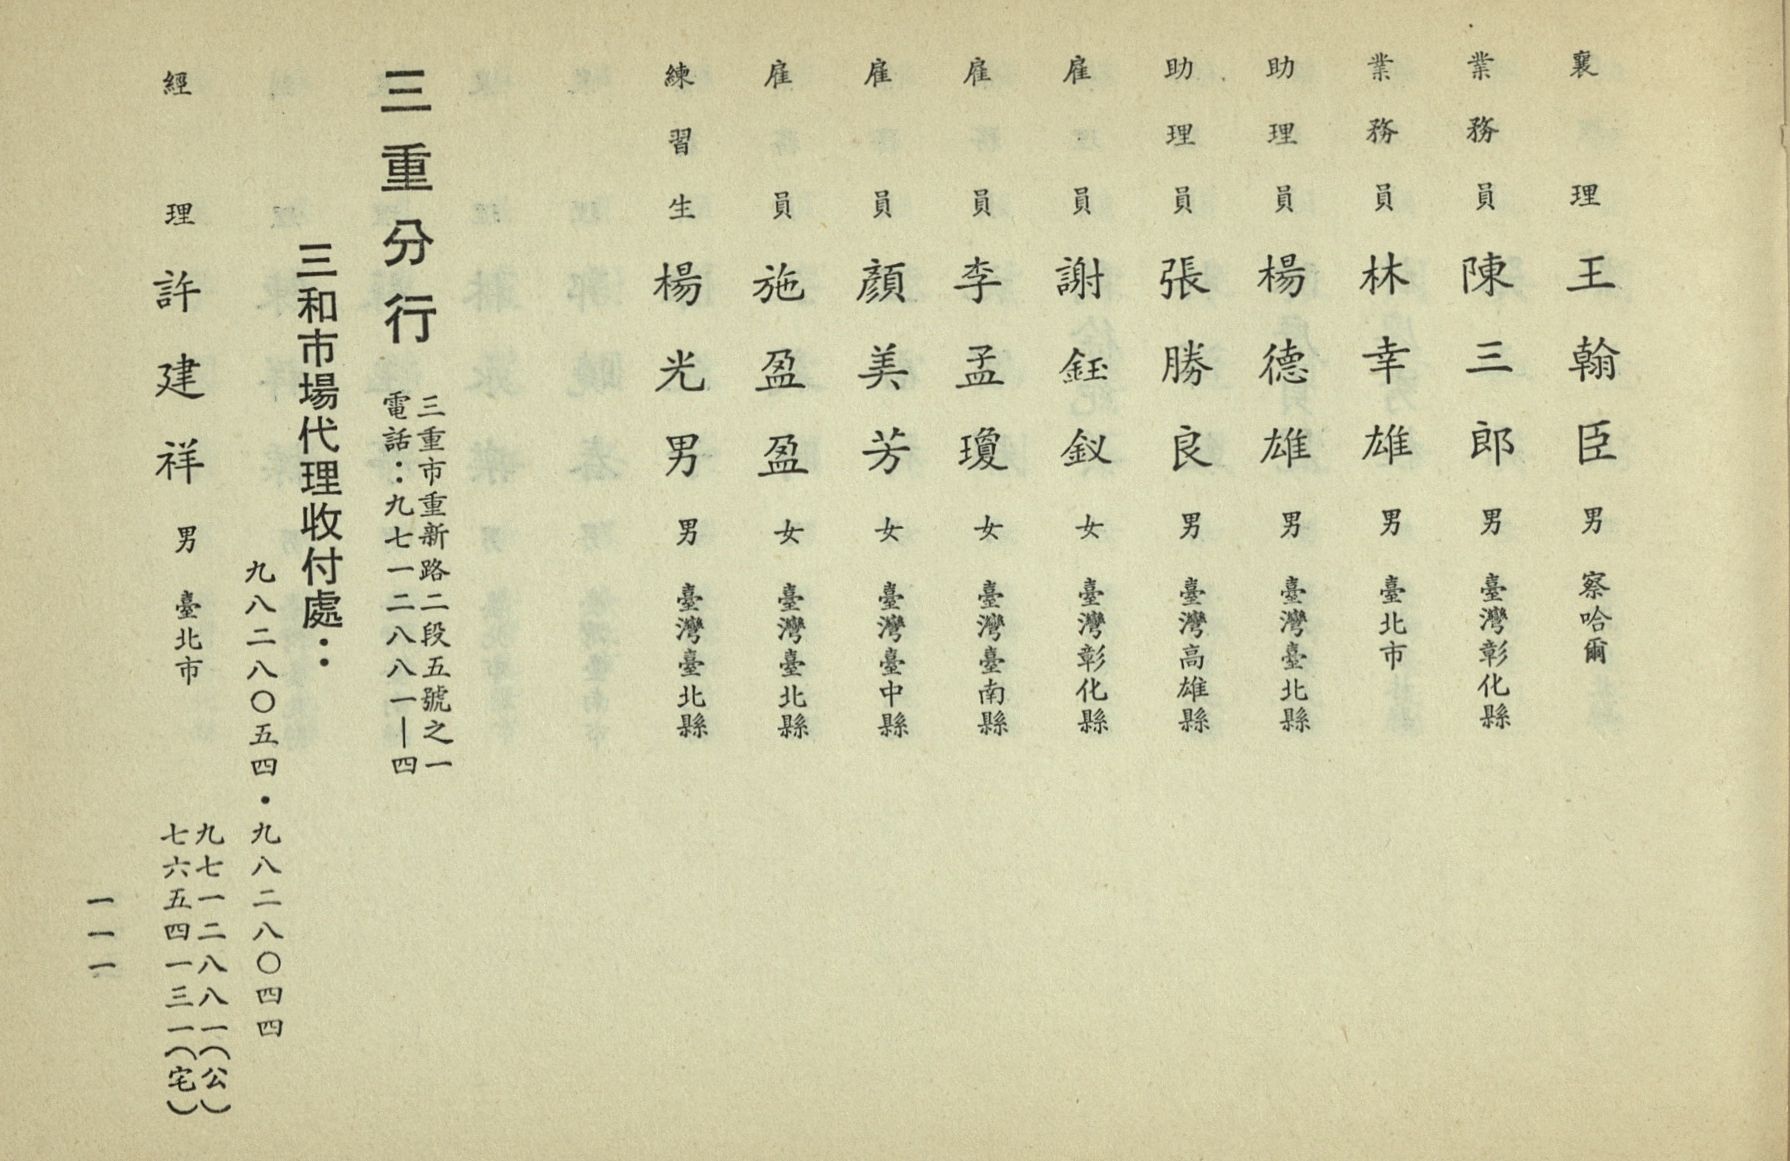 襄理 王翰臣 男 察哈爾
業務員 陳三郎 男 臺灣彰化縣
業務員 林幸雄 男 臺北市
助理員 楊德雄 男 臺灣臺北縣
助理員 張勝良 男 臺灣高雄縣
雇員 謝鈺釵 女 臺灣彰化縣
雇員 李孟瓊 女 臺灣臺南縣
雇員 顏美芳 女 臺灣臺中縣
雇員 施盈盈 女 臺灣臺北縣
練習生 楊光男 男 臺灣臺北縣
三重分行
三重市重新路二段五號之一
電話：九七一二八八一—四
三和市場代理收付處：
九八二八〇五四・九八二八〇四四
經理 許建祥 男 臺北市
九七一二八八一（公）
七六五四一三一（宅）
一一一